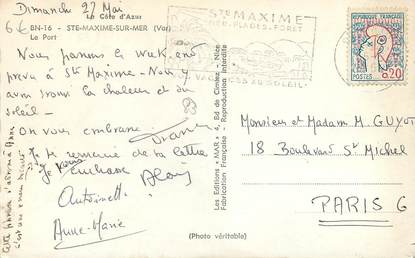 Dimanche 27 Mai
La Côte d'Azur
6€ BN-16 - STE-MAXIME-SUR-MER (Var)
Le Port
Nous passons le week-end
prévu à Ste Maxime - Nous y
avons trouvé la chaleur et du
soleil -
On vous embrasse
Je remercie de ta lettre
Je vous embrasse
Antoinette
Anne-Marie
(Photo véritable)
Les Editions "MAR", 4, Ed. de Cimiez - Nice
Fabrication Française - Reproduction Interdite
STE MAXIME
MER. PLAGES. FORET
VACANCES AU SOLEIL
REPUBLIQUE FRANÇAISE
POSTES 0,20
Monsieur et Madame M. GUYOT
18 Boulevard St Michel
PARIS 6